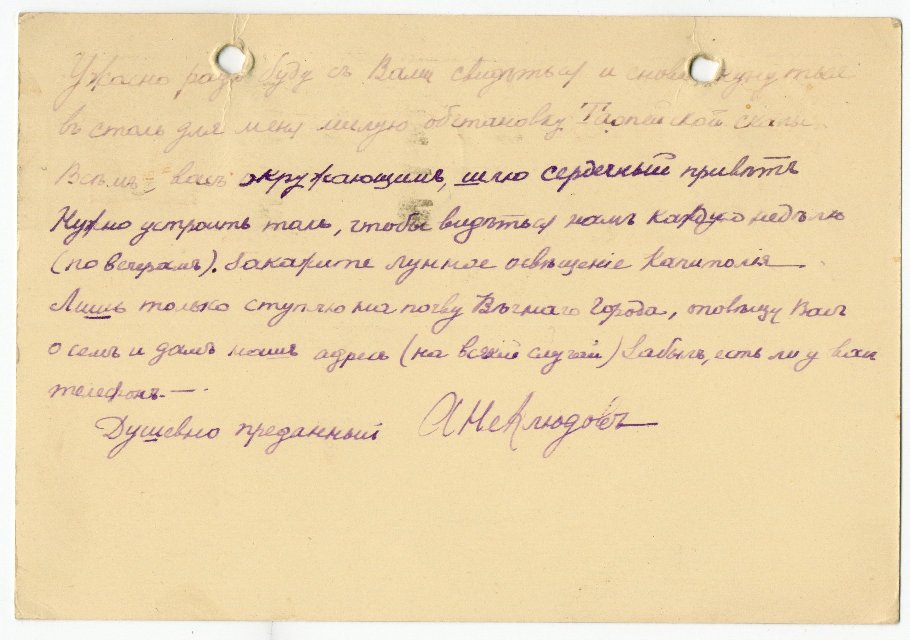 Ужасно радъ буду съ Вами свидѣться и снова окунуться
въ столь для меня милую обстановку Тарпейской скалы.
Всѣмъ, васъ окружающимъ, шлю сердечный привѣтъ
Нужно устроить такъ, чтобы видѣться намъ каждую недѣлю
(по вечерамъ). Закажите лунное освѣщеніе Капитолія —.
Лишь только ступлю на почву Вѣчнаго Города, оповѣщу Васъ
о семъ и дамъ нашъ адресъ (на всякій случай) Забылъ, есть ли у васъ
телефонъ. — .
Душевно преданный АНеклюдовъ